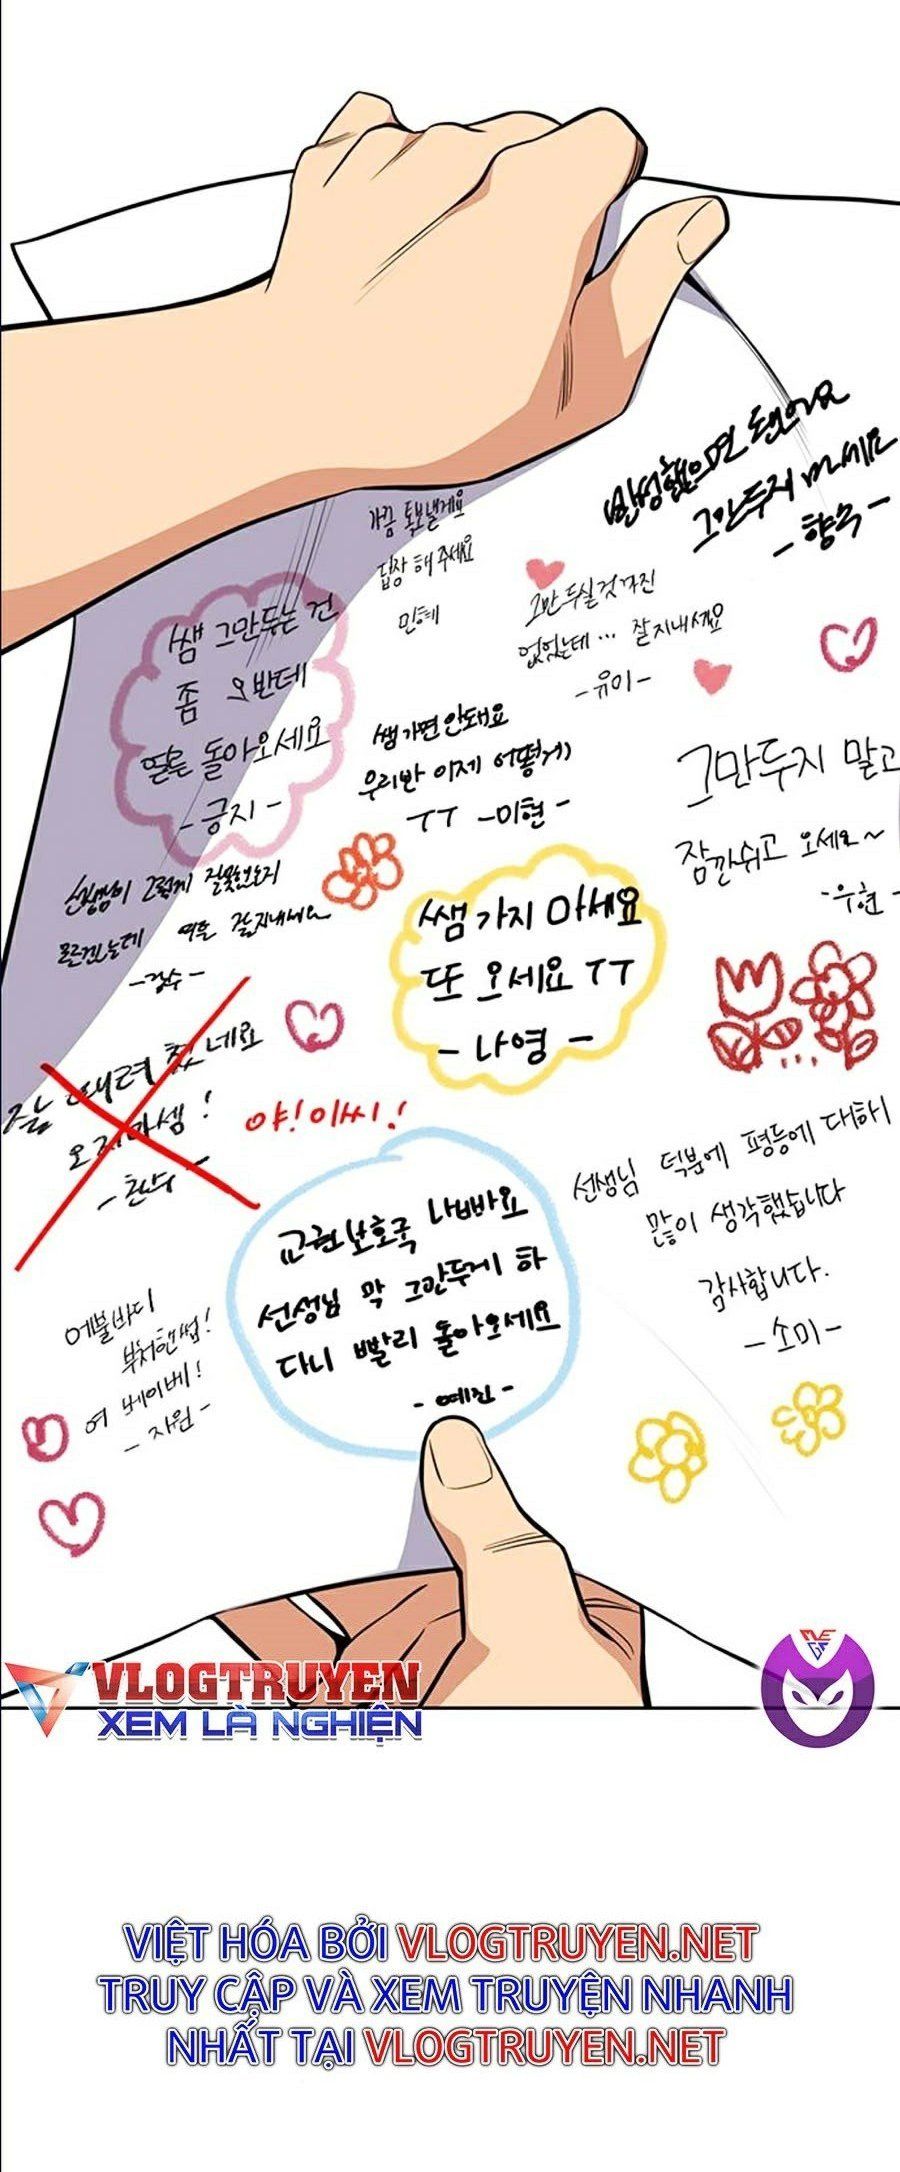 반성했으면 됐어요
그만두지 마세요
-향숙-
가끔 톡보낼게요
답장 해 주세요
민혜
그만 두실 것 까진
없었는데... 잘 지내세요
-유미-
쌤 그만두는 건
좀 오반데
얼른 돌아오세요
-긍지-
쌤 가면 안돼요
우리반 이제 어떻게
ㅜㅜ -미현-
그만두지 말고
잠깐쉬고 오세요~
-우현-
선생님이 그렇게 잘못했는지
모르겠는데 여튼 잘지내세요
-경수-
쌤 가지 마세요
또 오세요 ㅜㅜ
-나영-
때려 쳤네요
오지마셈!
야! 이씨!
교권보호국 나빠요
선생님 막 그만두게 하
다니 빨리 돌아오세요
-예진-
선생님 덕분에 평등에 대하
많이 생각했습니다
감사합니다.
-소미-
에블바디
부처핸썸!
여 베이베!
-지원-
VLOGTRUYEN
XEM LÀ NGHIỆN
VIỆT HÓA BỞI VLOGTRUYEN.NET
TRUY CẬP VÀ XEM TRUYỆN NHANH
NHẤT TẠI VLOGTRUYEN.NET